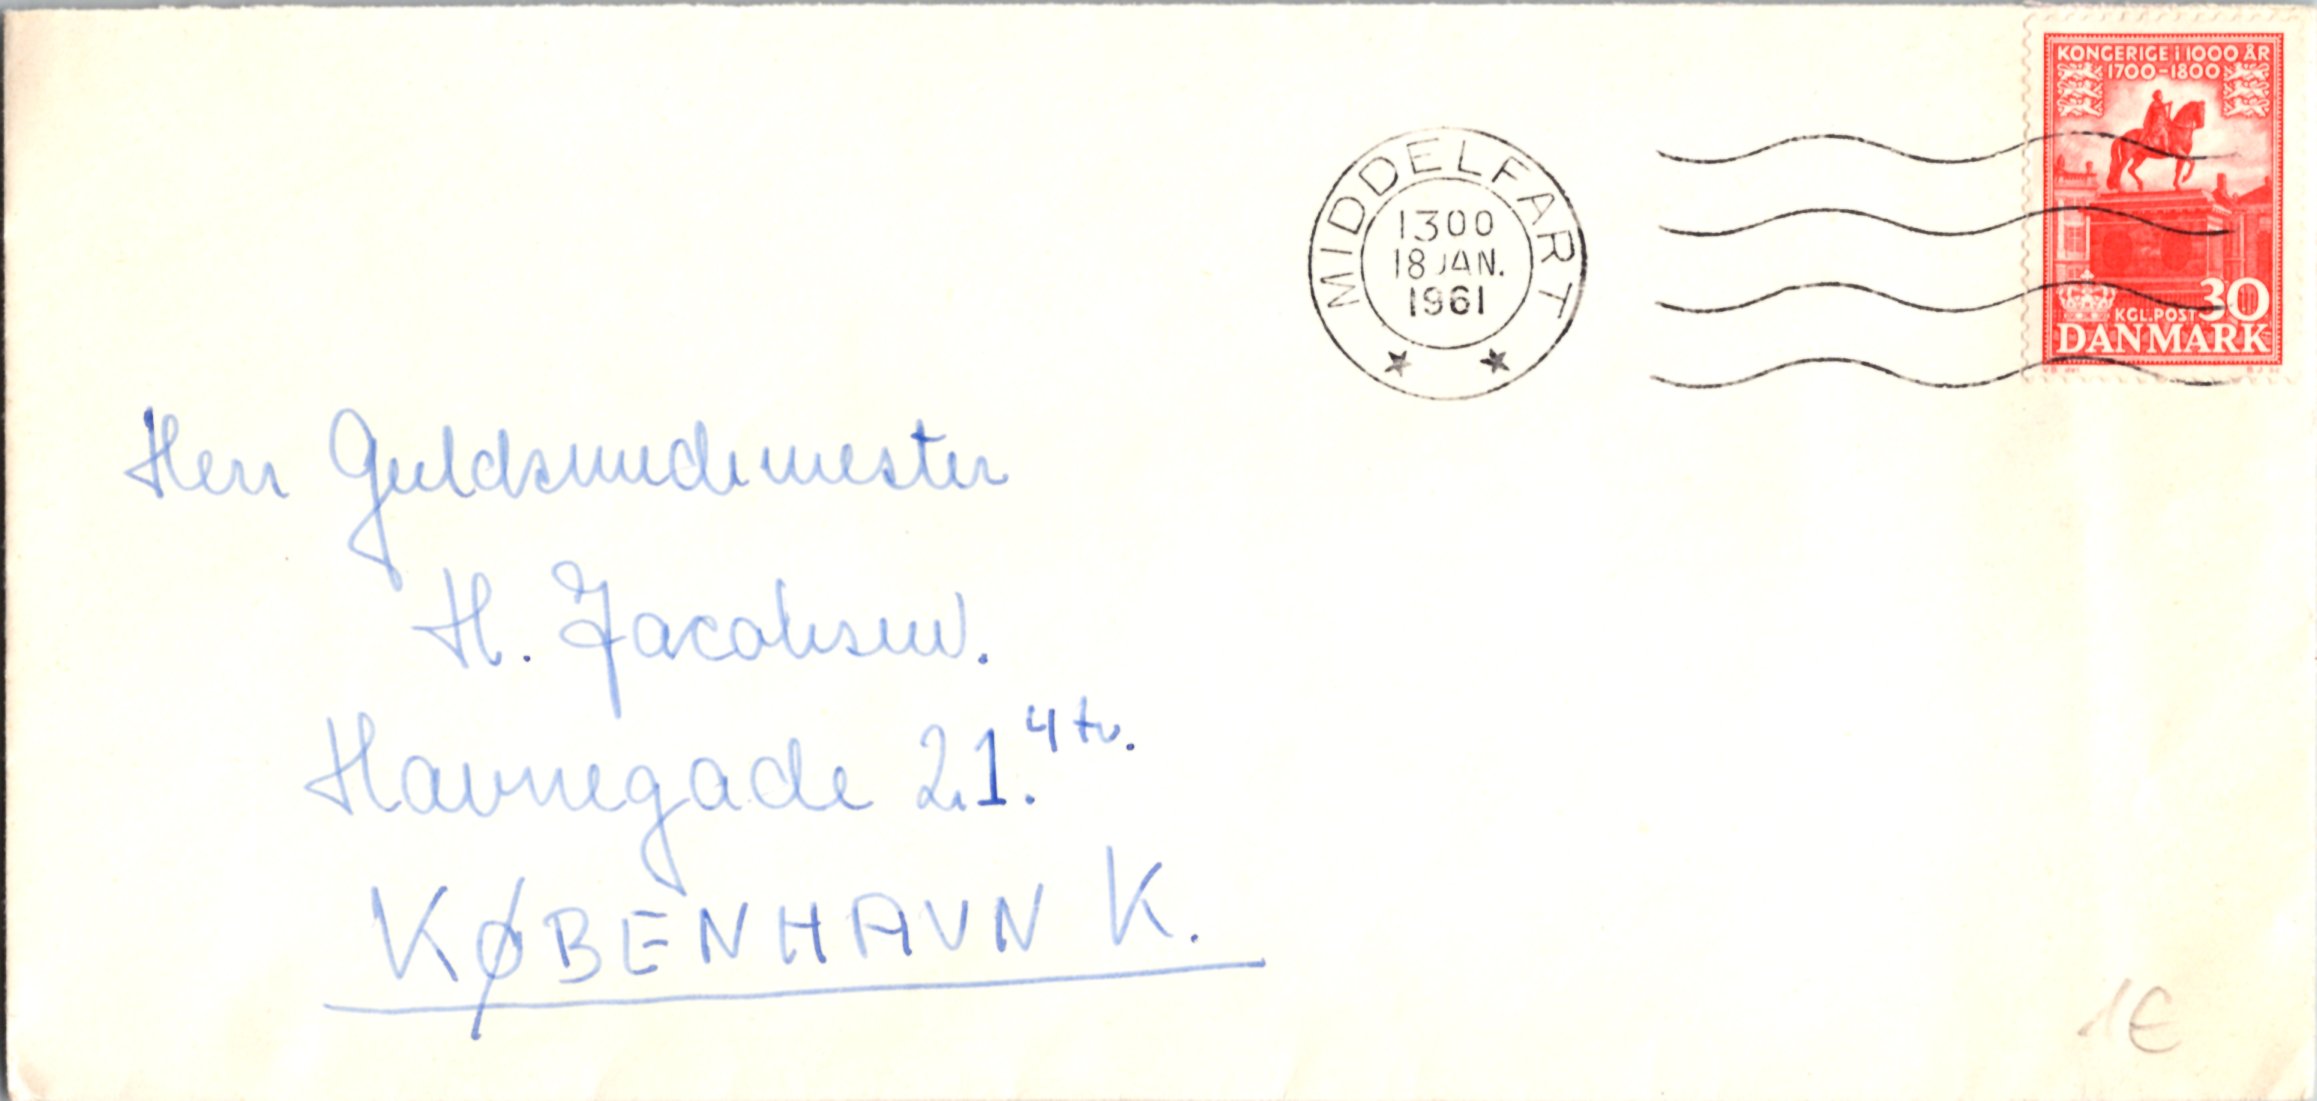 KONGERIGE I 1000 ÅR
1700-1800
KGL.POST 30
DANMARK
MIDDELFART
1300
18 JAN.
1961
Herr Guldsmedemester
H. Jacobsen.
Havnegade 21. 4 tv.
KØBENHAVN K.
1€